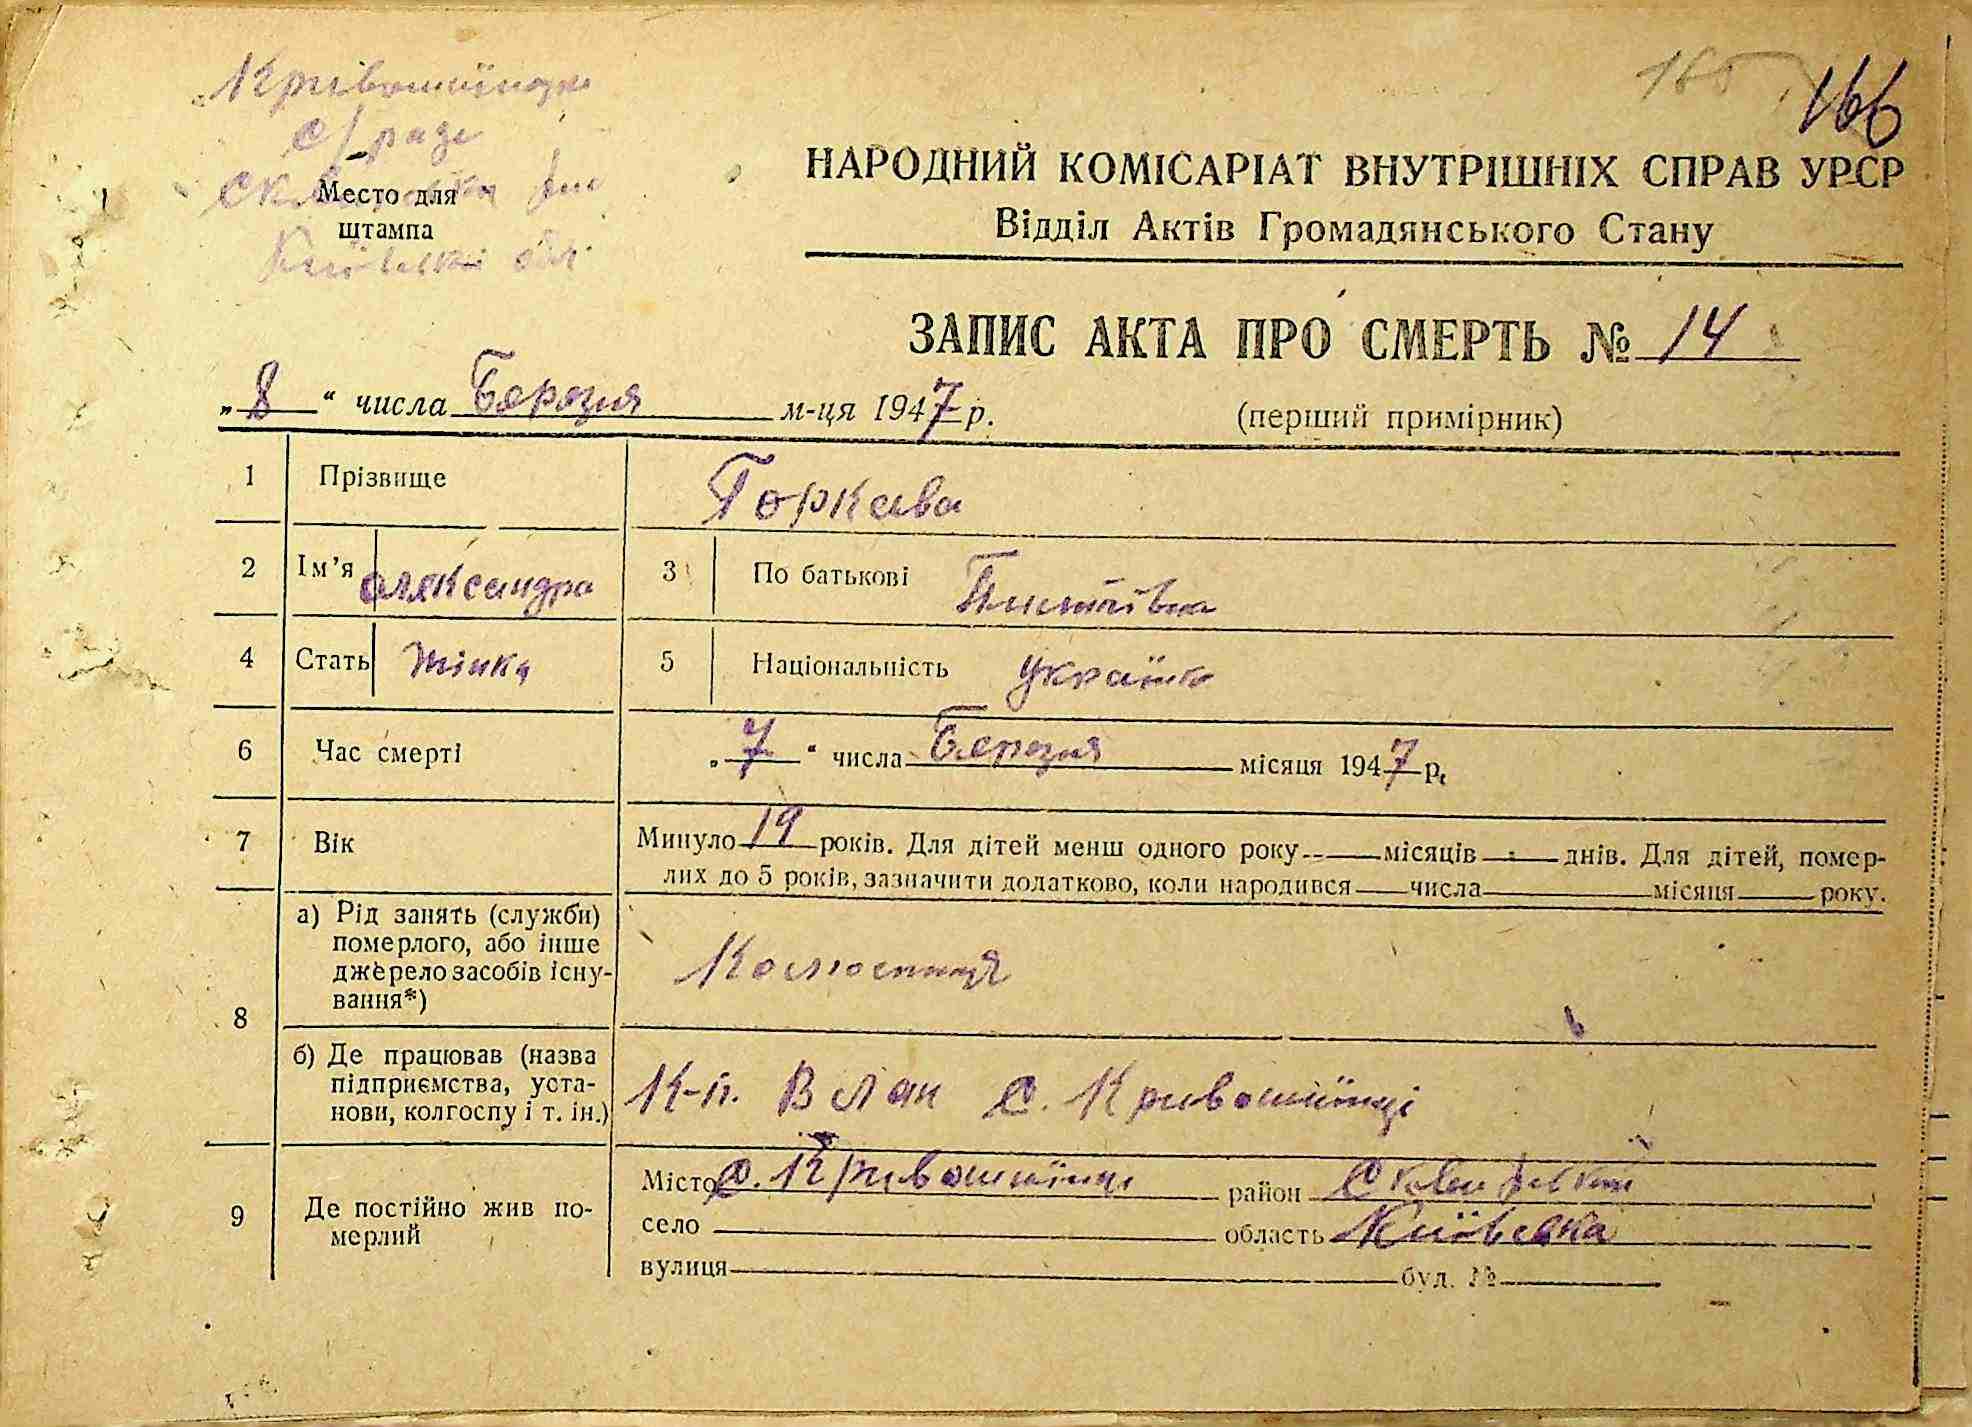 166
Кривошиїнська
с/рада
Место для
штампа
Київської обл.
НАРОДНИЙ КОМІСАРІАТ ВНУТРІШНІХ СПРАВ УРСР
Відділ Актів Громадянського Стану
ЗАПИС АКТА ПРО СМЕРТЬ № 14
„8“ числа Березня м-ця 1947 р. (перший примірник)
1 Прізвище Горкава
2 Ім’я Олександра 3 По батькові
4 Стать жінка 5 Національність українка
6 Час смерті „7“ числа Березня місяця 1947 р.
7 Вік Минуло 19 років. Для дітей менш одного року — місяців — днів. Для дітей, помер-
лих до 5 років, зазначити додатково, коли народився — числа — місяця — року.
8 а) Рід занять (служби)
померлого, або інше
джерело засобів існу-
вання*)
Колгоспниця
б) Де працював (назва
підприємства, уста-
нови, колгоспу і т. ін.)
К-п. В лан с. Кривошиїнці
9 Де постійно жив по-
мерлий
Місто с. Кривошиїнці район Сквирський
село область Київська
вулиця буд. №